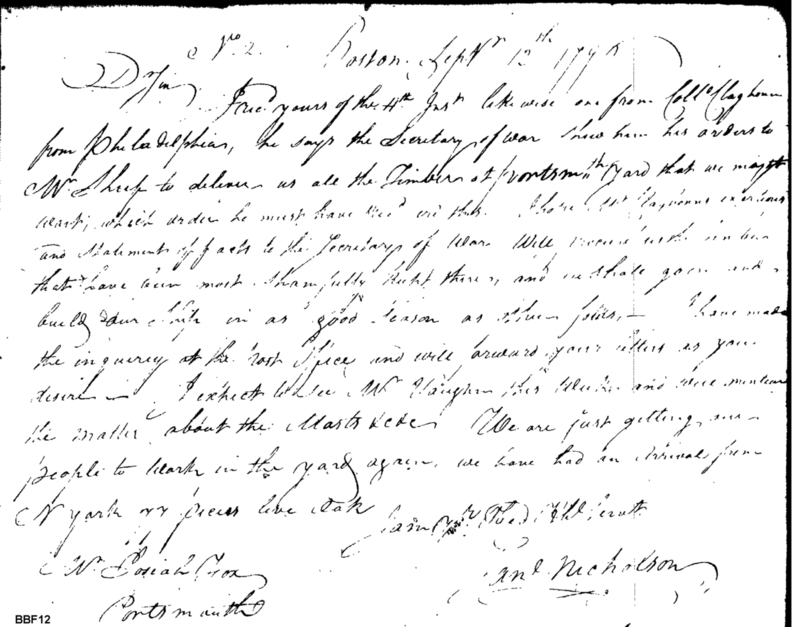 No 2. Boston Septr 12th 179
D Sir
I recd yours of the 4th Inst likewise one from Coll Claghorn
from Philadelphia, he says the Secretary of war shew him his orders to
Mr Sheaf to deliver us all the Timber at Portsmth Yard that we might
want, which order he must have recd ere this. I hope Mr Claghorns exertions
and Statement of facts to the Secretary of War Will
that have been most shamfully kept there, and we shall goon and
build our Ship in as good Season as other folks, — I have made
the inquirey at the Post Ofice and will forward your letters as you
desire — I expect to see Mr Vaughn this Week and will mention
the matter about the Masts &c We are just getting our
people to Work in the yard again, we have had an Arrival from
N York pieces live Oak
I am Sr Servt
Mr Josiah Fox Saml Nicholson
Portsmouth
BBF12